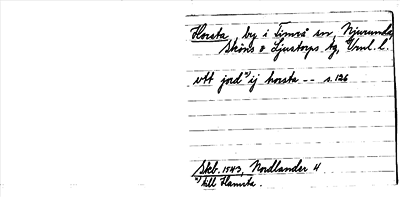 Horsta, by i Timrå sn, Njurunda,
Sköns & Ljustorps tg, Vml. l.
ett jord²⁾ ij horsta -- s. 126
Skb. 1543, Nordlander 4
²⁾ till Hamsta.